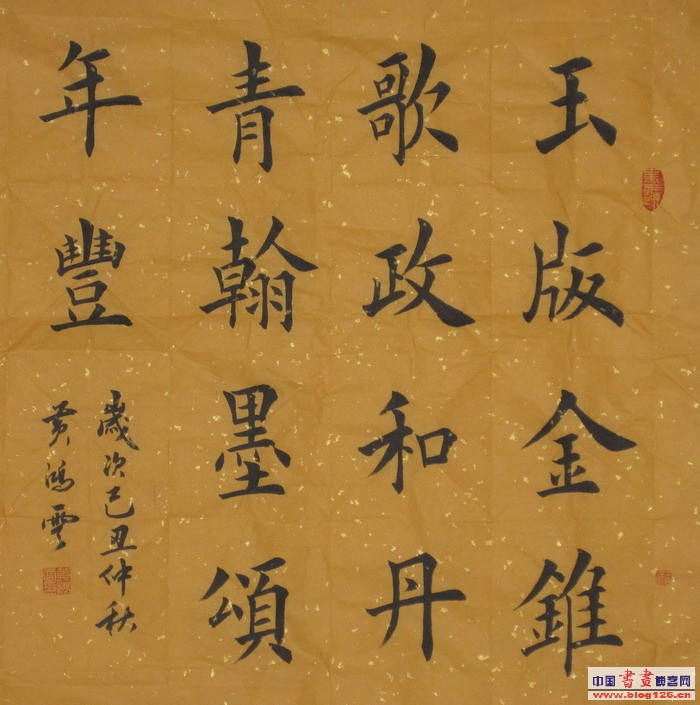 玉版金錐
歌政和丹
青翰墨頌
年豐
歲次己丑仲秋
黄鴻雲
中国書畫博客网
www.blog126.cn